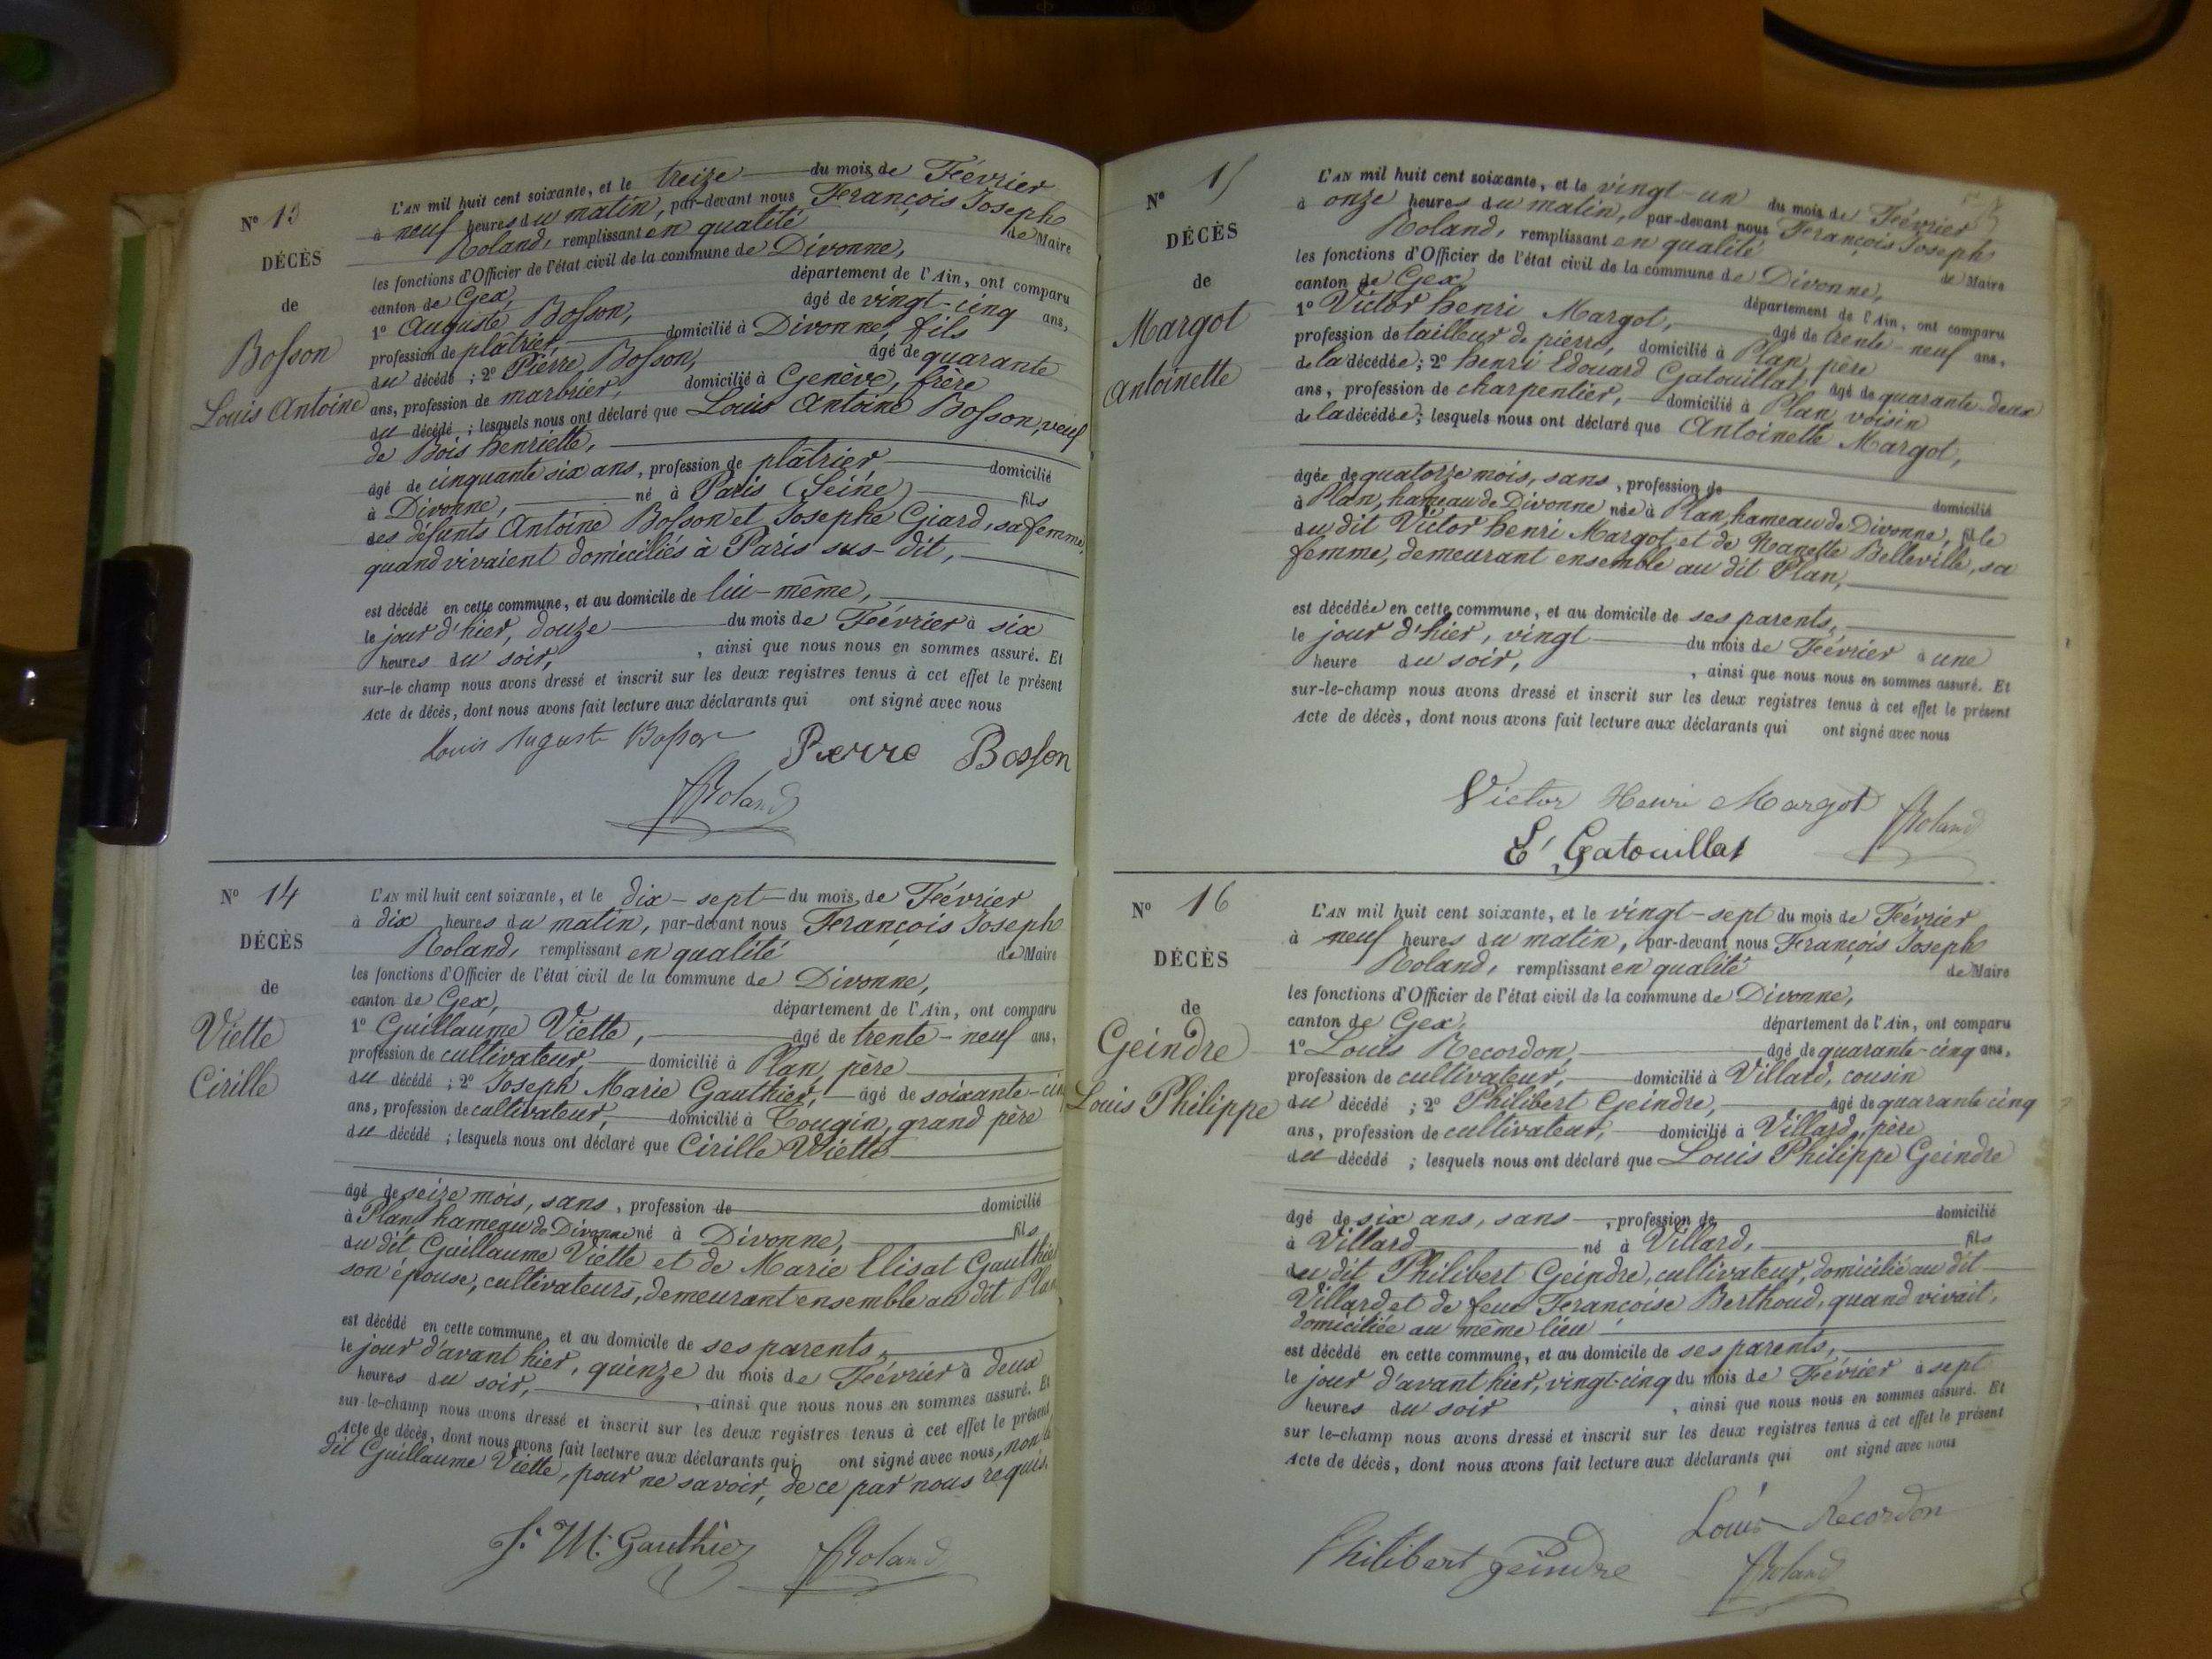 N° 13
DÉCÈS
de
Bosson
Louis Antoine
L'AN mil huit cent soixante, et le treize du mois de Février
à neuf heures du matin, par-devant nous François Joseph
Roland, remplissant en qualité de Maire
les fonctions d'Officier de l'état civil de la commune de Divonne,
canton de Gex, département de l'Ain, ont comparu
1° Auguste Bosson, âgé de vingt-cinq ans,
profession de plâtrier, domicilié à Divonne, fils
du décédé ; 2° Pierre Bosson, âgé de quarante
ans, profession de marbrier, domicilié à Genève, frère
du décédé ; lesquels nous ont déclaré que Louis Antoine Bosson, veuf
de Bois henriette,
âgé de cinquante six ans, profession de plâtrier domicilié
à Divonne, né à Paris (Seine) fils
des défunts Antoine Bosson et Josephe Giard, sa femme,
quand vivaient domiciliés à Paris sus-dit,
est décédé en cette commune, et au domicile de lui-même,
le jour d'hier, douze du mois de Février à six
heures du soir, , ainsi que nous nous en sommes assuré. Et
sur-le champ nous avons dressé et inscrit sur les deux registres tenus à cet effet le présent
Acte de décès, dont nous avons fait lecture aux déclarants qui ont signé avec nous
Louis Auguste Bosson Pierre Bosson
Roland
N° 14
DÉCÈS
de
Viette
Cirille
L'AN mil huit cent soixante, et le dix-sept du mois de Février
à dix heures du matin, par-devant nous François Joseph
Roland, remplissant en qualité de Maire
les fonctions d'Officier de l'état civil de la commune de Divonne,
canton de Gex, département de l'Ain, ont comparu
1° Guillaume Viette, âgé de trente-neuf ans,
profession de cultivateur, domicilié à Plan, père
du décédé ; 2° Joseph Marie Gauthier, âgé de soixante-cin
ans, profession de cultivateur, domicilié à Tougin, grand père
du décédé ; lesquels nous ont déclaré que Cirille Viette
âgé de seize mois, sans, profession de domicilié
à Plan, hameau de Divonne né à Divonne, fils
du dit Guillaume Viette et de Marie Elisat Gauthier
son épouse, cultivateurs, demeurant ensemble au dit Plan
est décédé en cette commune, et au domicile de ses parents,
le jour d'avant hier, quinze du mois de Février à deux
heures du soir, , ainsi que nous nous en sommes assuré. Et
sur-le-champ nous avons dressé et inscrit sur les deux registres tenus à cet effet le présent
Acte de décès, dont nous avons fait lecture aux déclarants qui ont signé avec nous, non le
dit Guillaume Viette, pour ne savoir, de ce par nous requis.
J. M. Gauthier Roland
N° 15
DÉCÈS
de
Margot
Antoinette
L'AN mil huit cent soixante, et le vingt-un du mois de Février
à onze heures du matin, par-devant nous François Joseph
Roland, remplissant en qualité de Maire
les fonctions d'Officier de l'état civil de la commune de Divonne,
canton de Gex, département de l'Ain, ont comparu
1° Victor henri Margot, âgé de trente-neuf ans,
profession de tailleur de pierre, domicilié à Plan, père
de la décédée ; 2° henri Edouard Gatouillat, âgé de quarante-deux
ans, profession de charpentier, domicilié à Plan, voisin
de la décédée ; lesquels nous ont déclaré que Antoinette Margot,
âgée de quatorze mois, sans, profession de domicilié
à Plan, hameau de Divonne née à Plan, hameau de Divonne, fille
du dit Victor henri Margot et de Nanette Belleville, sa
femme, demeurant ensemble au dit Plan,
est décédée en cette commune, et au domicile de ses parents,
le jour d'hier, vingt du mois de Février à une
heure du soir, , ainsi que nous nous en sommes assuré. Et
sur-le-champ nous avons dressé et inscrit sur les deux registres tenus à cet effet le présent
Acte de décès, dont nous avons fait lecture aux déclarants qui ont signé avec nous
Victor Henri Margot Roland
E Gatouillat
N° 16
DÉCÈS
de
Geindre
Louis Philippe
L'AN mil huit cent soixante, et le vingt-sept du mois de Février
à neuf heures du matin, par-devant nous François Joseph
Roland, remplissant en qualité de Maire
les fonctions d'Officier de l'état civil de la commune de Divonne,
canton de Gex, département de l'Ain, ont comparu
1° Louis Recordon, âgé de quarante-cinq ans,
profession de cultivateur, domicilié à Villard, cousin
du décédé ; 2° Philibert Geindre, âgé de quarante cinq
ans, profession de cultivateur, domicilié à Villard, père
du décédé ; lesquels nous ont déclaré que Louis Philippe Geindre
âgé de six ans, sans , profession de domicilié
à Villard né à Villard, fils
du dit Philibert Geindre, cultivateur, domicilié au dit
Villard et de feue Françoise Berthoud, quand vivait,
domiciliée au même lieu
est décédé en cette commune, et au domicile de ses parents,
le jour d'avant hier, vingt-cinq du mois de Février à sept
heures du soir , ainsi que nous nous en sommes assuré. Et
sur le-champ nous avons dressé et inscrit sur les deux registres tenus à cet effet le présent
Acte de décès, dont nous avons fait lecture aux déclarants qui ont signé avec nous
Louis Recordon
Philibert geindre Roland